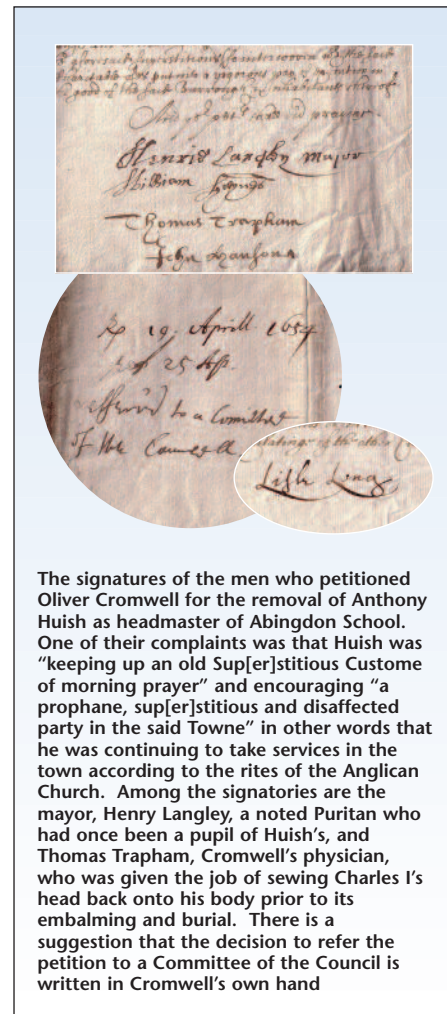 good of the said Burrough & Inhabitants thereof
And yor petrs
Henrie Langley Major
William
Thomas Trapham
John Hansone
19. Aprill 1654
25 Ap.
refferr'd to a Comittee
of the Councell
of the other
Lisle Long
The signatures of the men who petitioned
Oliver Cromwell for the removal of Anthony
Huish as headmaster of Abingdon School.
One of their complaints was that Huish was
“keeping up an old Sup[er]stitious Custome
of morning prayer” and encouraging “a
prophane, sup[er]stitious and disaffected
party in the said Towne” in other words that
he was continuing to take services in the
town according to the rites of the Anglican
Church. Among the signatories are the
mayor, Henry Langley, a noted Puritan who
had once been a pupil of Huish’s, and
Thomas Trapham, Cromwell’s physician,
who was given the job of sewing Charles I’s
head back onto his body prior to its
embalming and burial. There is a
suggestion that the decision to refer the
petition to a Committee of the Council is
written in Cromwell’s own hand